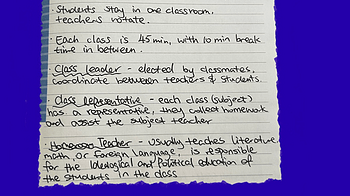 • Students stay in one classroom.
teachers rotate.
• Each class is 45 min, with 10 min break
time in between.
• Class leader - elected by classmates.
Coordinate between teachers & students.
• Class representative - each class (subject)
has a representative, they collect homework
and assist the subject teacher
• Homeroom Teacher - usually teaches literature,
math, or foreign language. is responsible
for the Idelogical and Political education of
the students in the class